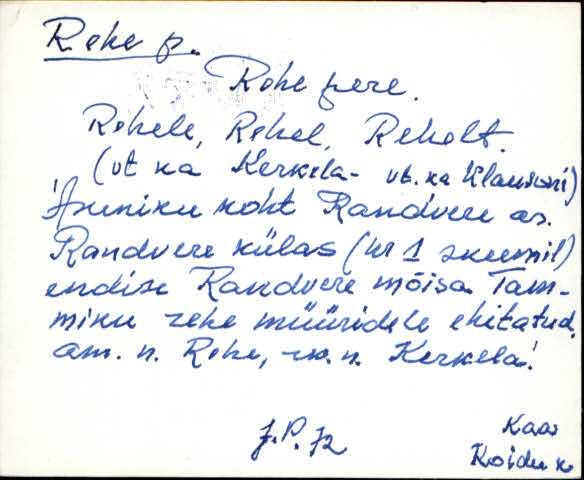 Rehe p.
Rehe pere.
Rehele, Rehel, Rehelt.
(vt ka Kerkela- vt. ka Klausoni)
Asuniku koht Randvere as.
Randvere külas (nr 1 skeemil)
endise Randvere mõisa Tam-
miku rehe müüridele ehitatud.
am. n. Rehe, rw. n. Kerkela!
J.P. 72
Kaar
Koidu k